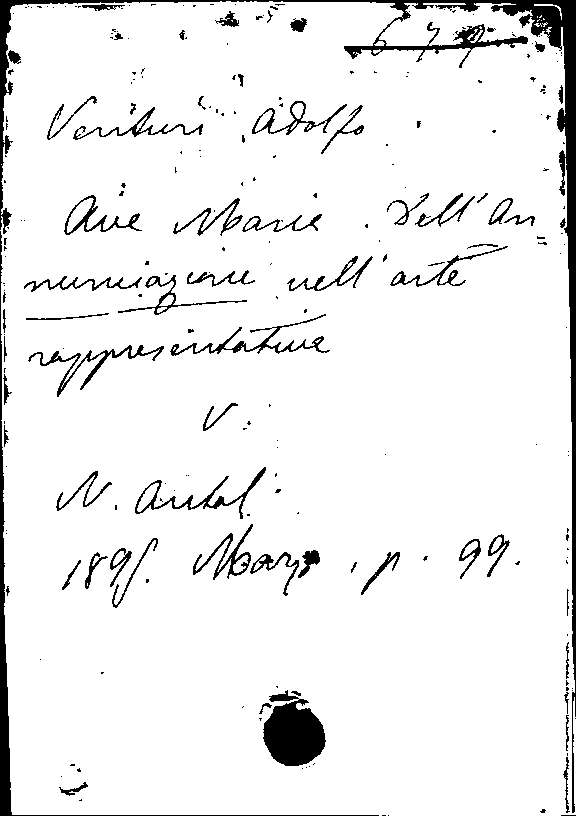 6 7 9
Venturi Adolfo
Ave Maria. Dell'An=
nunciazione nell'arte
rappresentativa
V.
N. Antol.
1895. Marzo, p. 99.